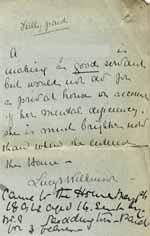 Fully paid
A is
making a good servant
but would not do for
a private house on account
of her mental deficiency.
She is much brighter now
than when she entered
the Home -
Lucy Wilkinson
Came to the Home
16
Reddington Paid
for 3 years